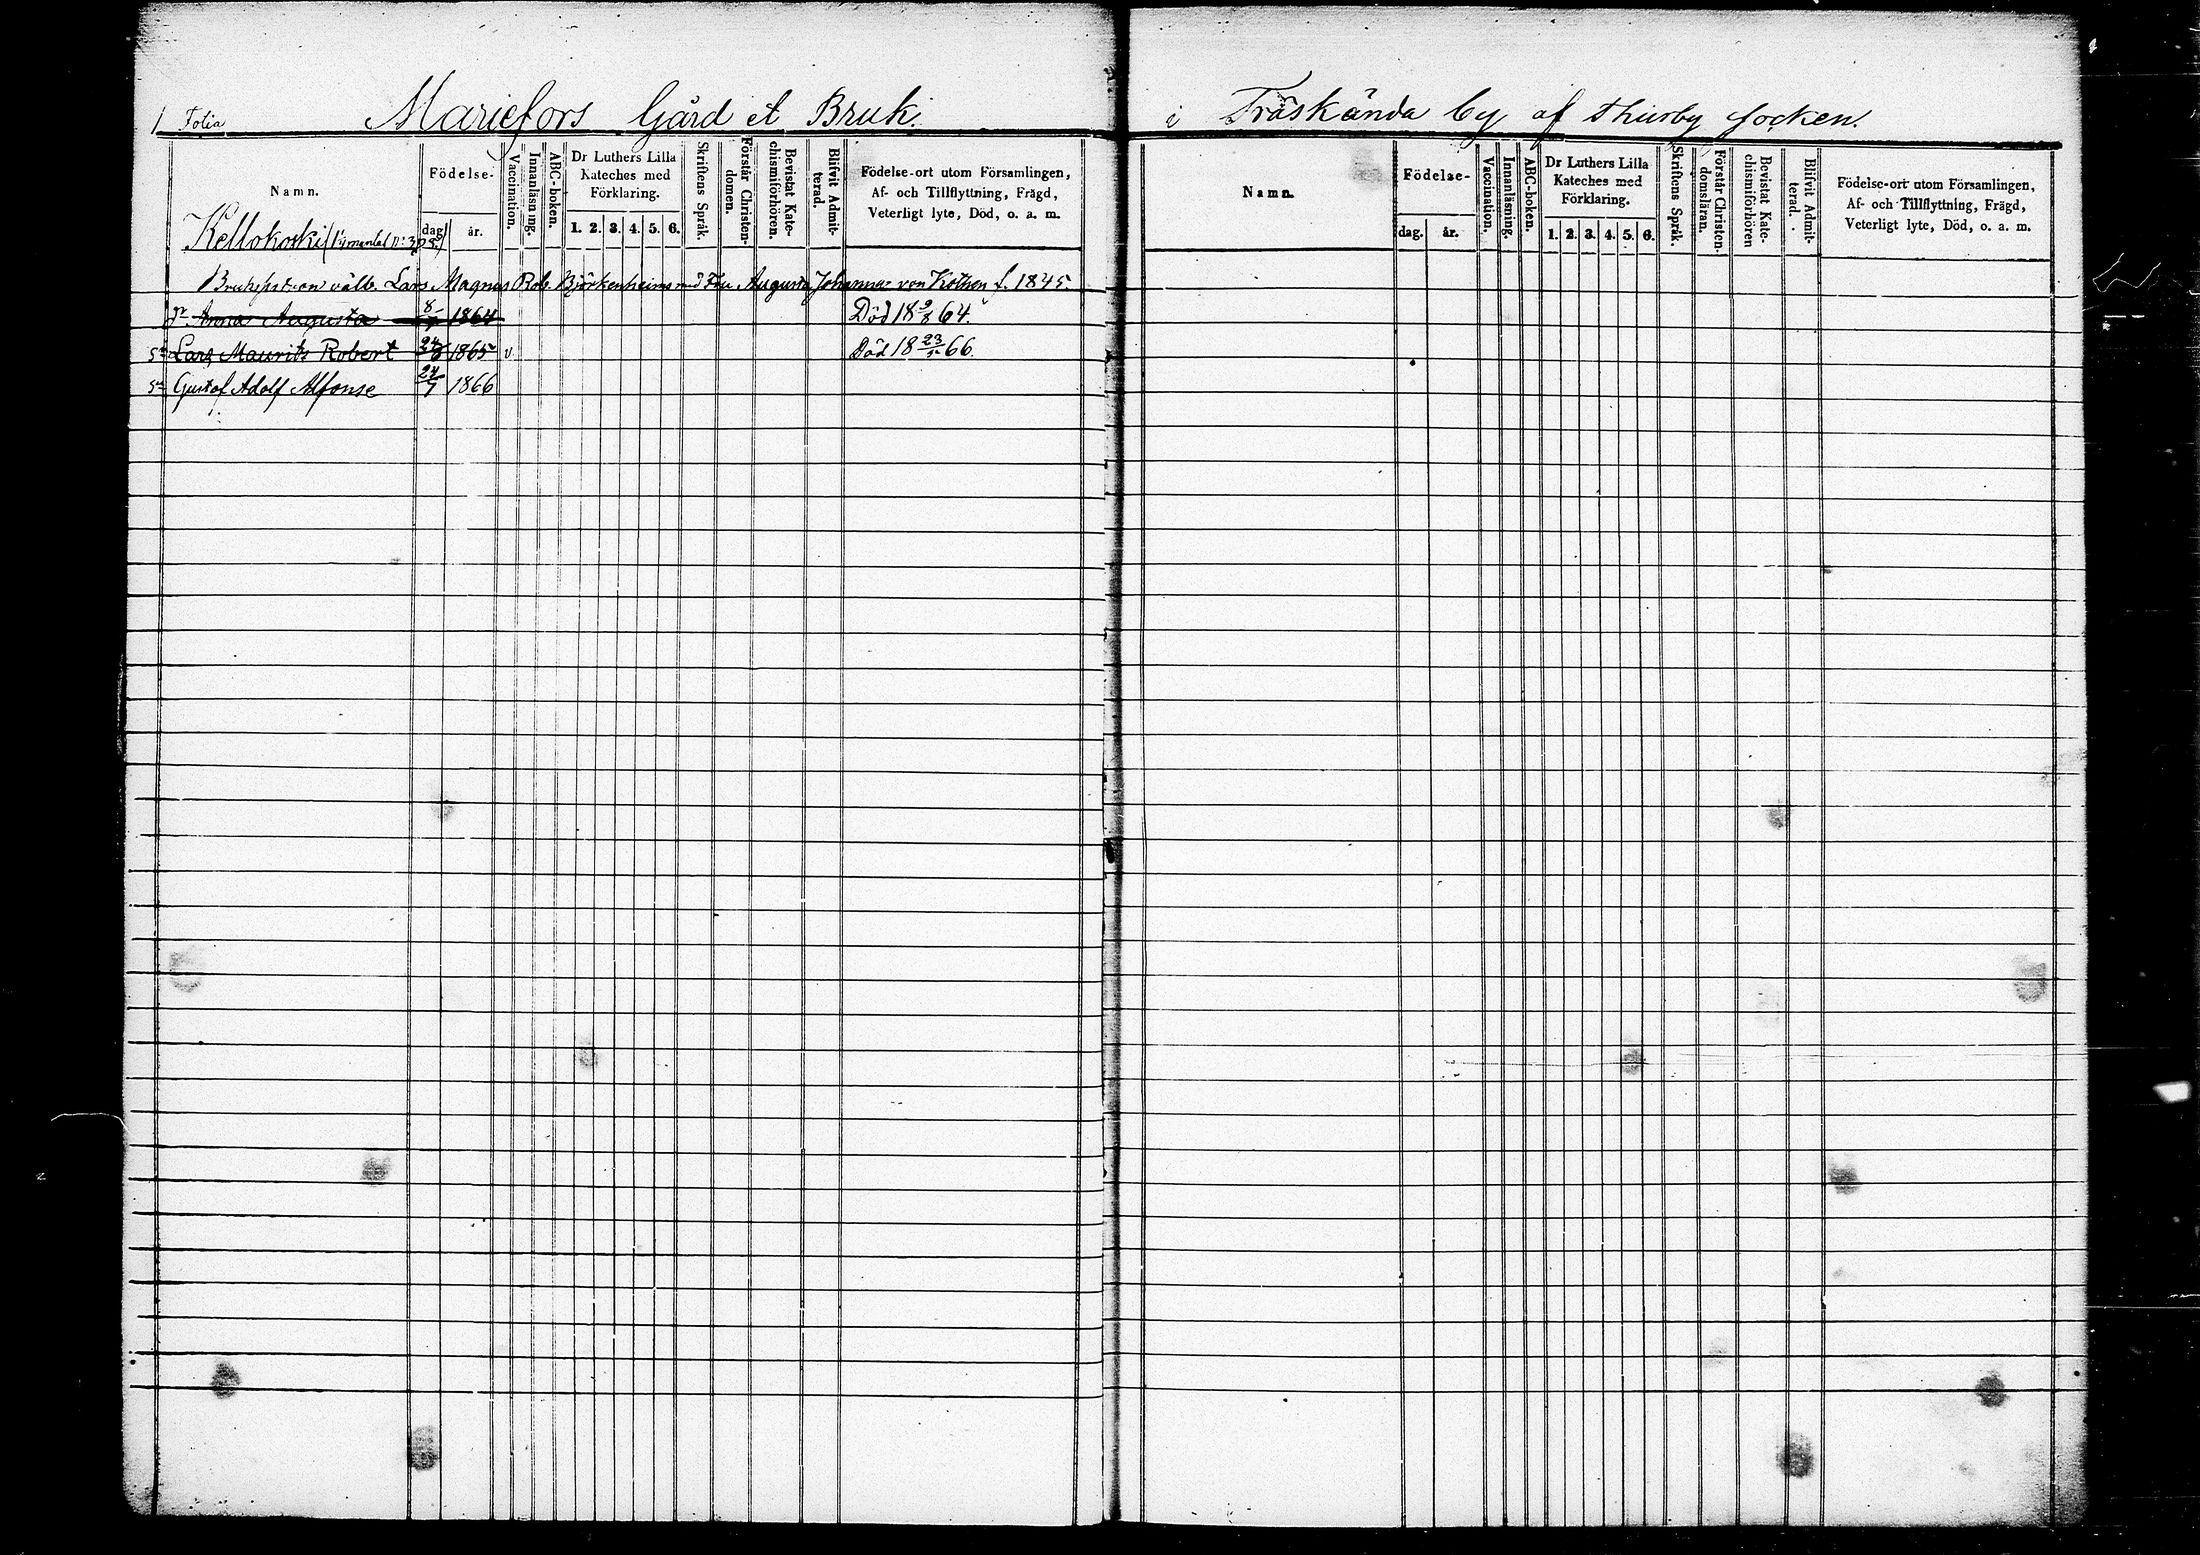 1 Folia Mariefors Gård et Bruk.
Namn.
Födelse-
dag
år.
Vaccination.
Innanläsning.
ABC-boken.
Dr Luthers Lilla
Kateches med
Förklaring.
1. 2. 3. 4. 5. 6.
Skriftens Språk.
Förstår Christen-
domen.
Bevistat Kate-
chismiförhören.
Blifvit Admit-
terad.
Födelse-ort utom Församlingen,
Af- och Tillflyttning, Frägd,
Veterligt lyte, Död, o. a. m.
Kellokoski
Brukspatron välb. Lars Magnus Rob. Björkenheim med Fru Augusta Johanna von Kothen f. 1845.
Dr Anna Augusta 8/7 1864 Död 18 9/8 64.
Sn Lars Maurits Robert 24/8 1865 v Död 18 23/5 66.
Sn Gustaf Adolf Alfonse 24/7 1866
i Träskända by af Thusby socken.
Namn.
Födelse-
dag.
år.
Vaccination.
Innanläsning.
ABC-boken.
Dr Luthers Lilla
Kateches med
Förklaring.
1. 2. 3. 4. 5. 6.
Skriftens Språk.
Förstår Christen-
domsläran.
Bevistat Kate-
chismiförhören
Blifvit Admit-
terad.
Födelse-ort utom Församlingen,
Af- och Tillflyttning, Frägd,
Veterligt lyte, Död, o. a. m.